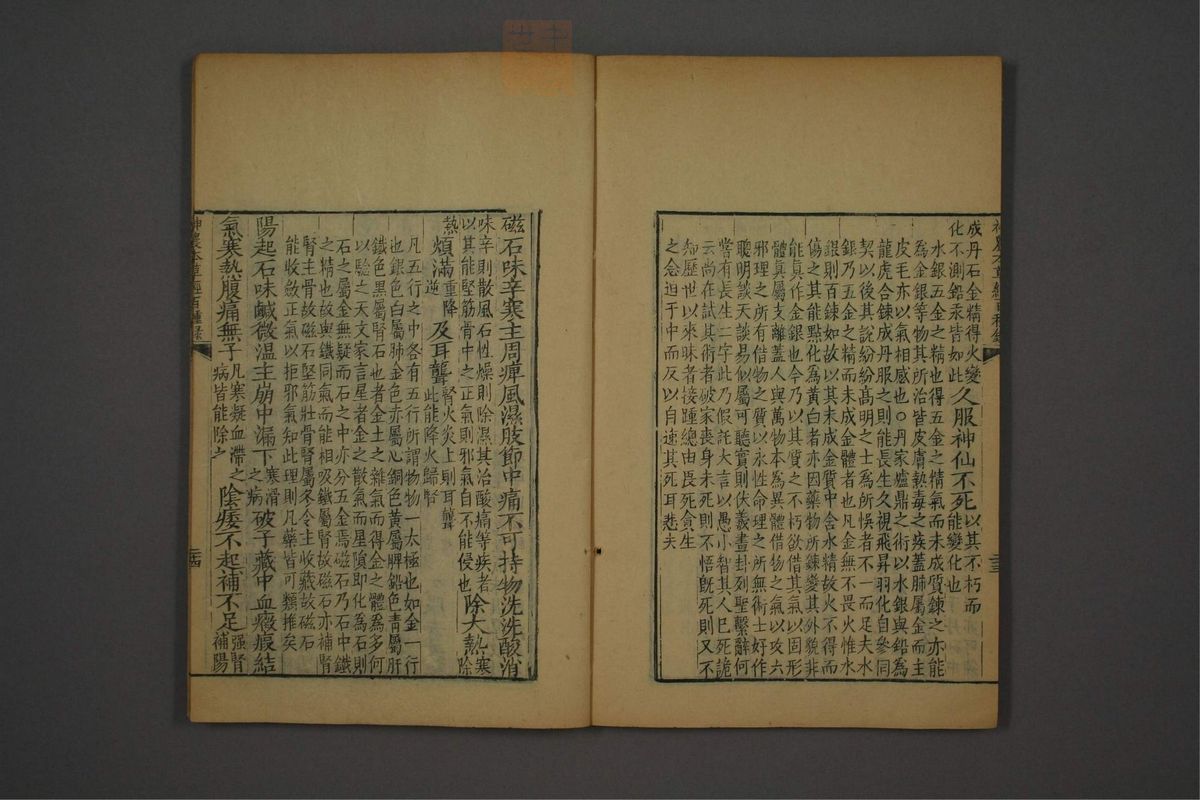 神農本草經百種錄
成丹石金精得火變
化不測鉛汞皆如此
久服神仙不死
以其不朽而
能變化也
水銀五金之精也得五金之精氣而未成質鍊之亦能
為金銀等物其所治皆皮膚熱毒之疾蓋肺屬金而主
皮毛亦以氣相感也○丹家爐鼎之術以水銀與鉛為
龍虎合鍊成丹服之則能長生久視飛昇羽化自參同
契以後其說紛紛高明之士為所悞者不一而足夫水
銀乃五金之精而未成金體者也凡金無不畏火惟水
銀則百鍊如故以其未成金質中含水精故火不得而
傷之其能點化為黃白者亦因藥物所鍊變其外貌非
能眞作金銀也今乃以其質之不朽欲借其氣以固形
體眞屬支離蓋人與萬物本為異體借物之氣以攻六
邪理之所有借物之質以永性命理之所無術士好作
聰明談天談易似屬可聽實則伏羲畫卦列聖繫辭何
嘗有長生二字此乃假託大言以愚小智其人已死詭
云尚在試其術者破家喪身未死則不悟既死則又不
知歷世以來昧者接踵總由畏死貪生
之念迫于中而反以自速其死耳悲夫
磁石味辛寒主周痺風濕肢節中痛不可持物洗洗酸消
味辛則散風石性燥則除濕其治酸痛等疾者
以其能堅筋骨中之正氣則邪氣自不能侵也
除大熱
寒
除
熱
煩滿
重降
逆
及耳聾
腎火炎上則耳聾
此能降火歸腎
凡五行之中各有五行所謂物物一太極也如金一行
也銀色白屬肺金色赤屬心銅色黃屬脾鉛色青屬肝
鐵色黑屬腎石也者金土之雜氣而得金之體為多何
以驗之天文家言星者金之散氣而星隕即化為石則
石之屬金無疑而石之中亦分五金焉磁石乃石中鐵
之精也故與鐵同氣而能相吸鐵屬腎故磁石亦補腎
腎主骨故磁石堅筋壯骨腎屬冬令主收藏故磁石
能收斂正氣以拒邪氣知此理則凡藥皆可類推矣
陽起石味鹹微温主崩中漏下
寒滑
之病
破子藏中血癥瘕結
氣寒熱腹痛無子
凡寒凝血滯之
病皆能除之
陰痿不起補不足
强腎
補陽
神農本草經百種錄